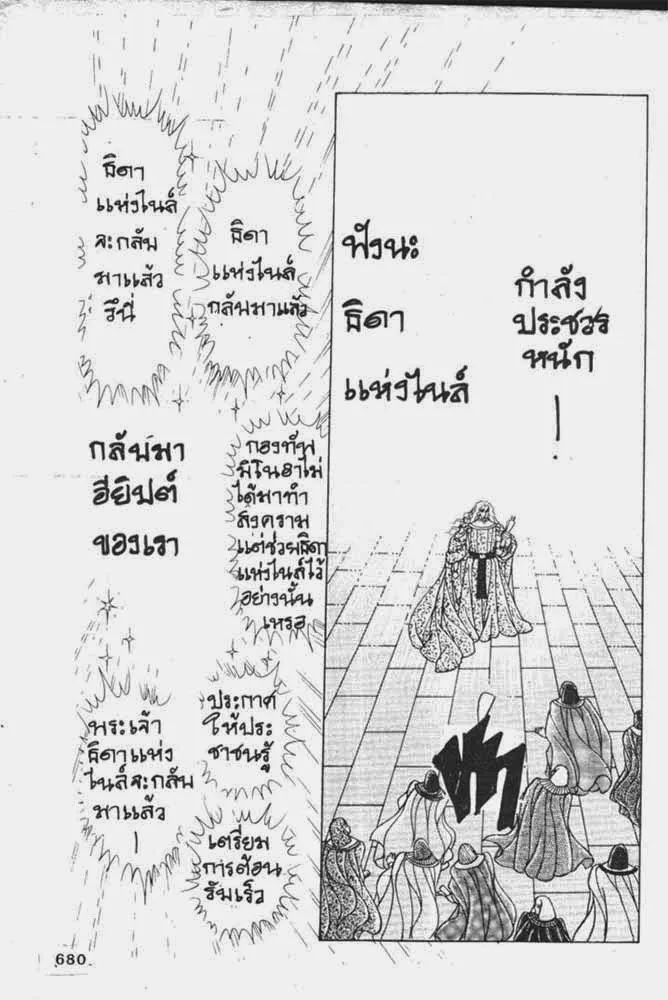 ฟังนะ
ธิดา
แห่งไนล์
กำลัง
ประชวร
หนัก
!
ธิดา
แห่งไนล์
จะกลับ
มาแล้ว
รึนี่
ธิดา
แห่งไนล์
กลับมาแล้ว
กลับมา
อียิปต์
ของเรา
กองทัพ
มิโนอาไม่
ได้มาทำ
สงคราม
แต่ช่วยธิดา
แห่งไนล์ไว้
อย่างนั้น
เหรอ
ประกาศ
ให้ประ
ชาชนรู้
พระเจ้า
ธิดาแห่ง
ไนล์จะกลับ
มาแล้ว
!
เตรียม
การต้อน
รับเร็ว
680